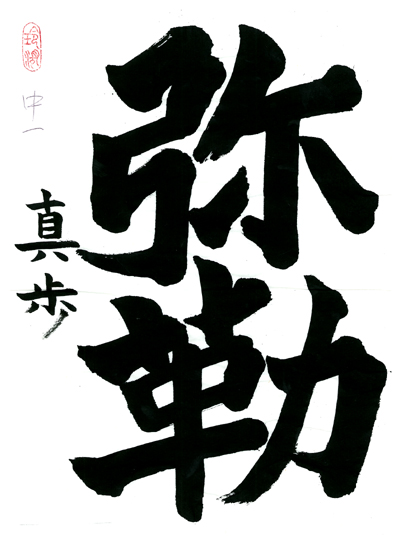 弥勒
中一
真歩